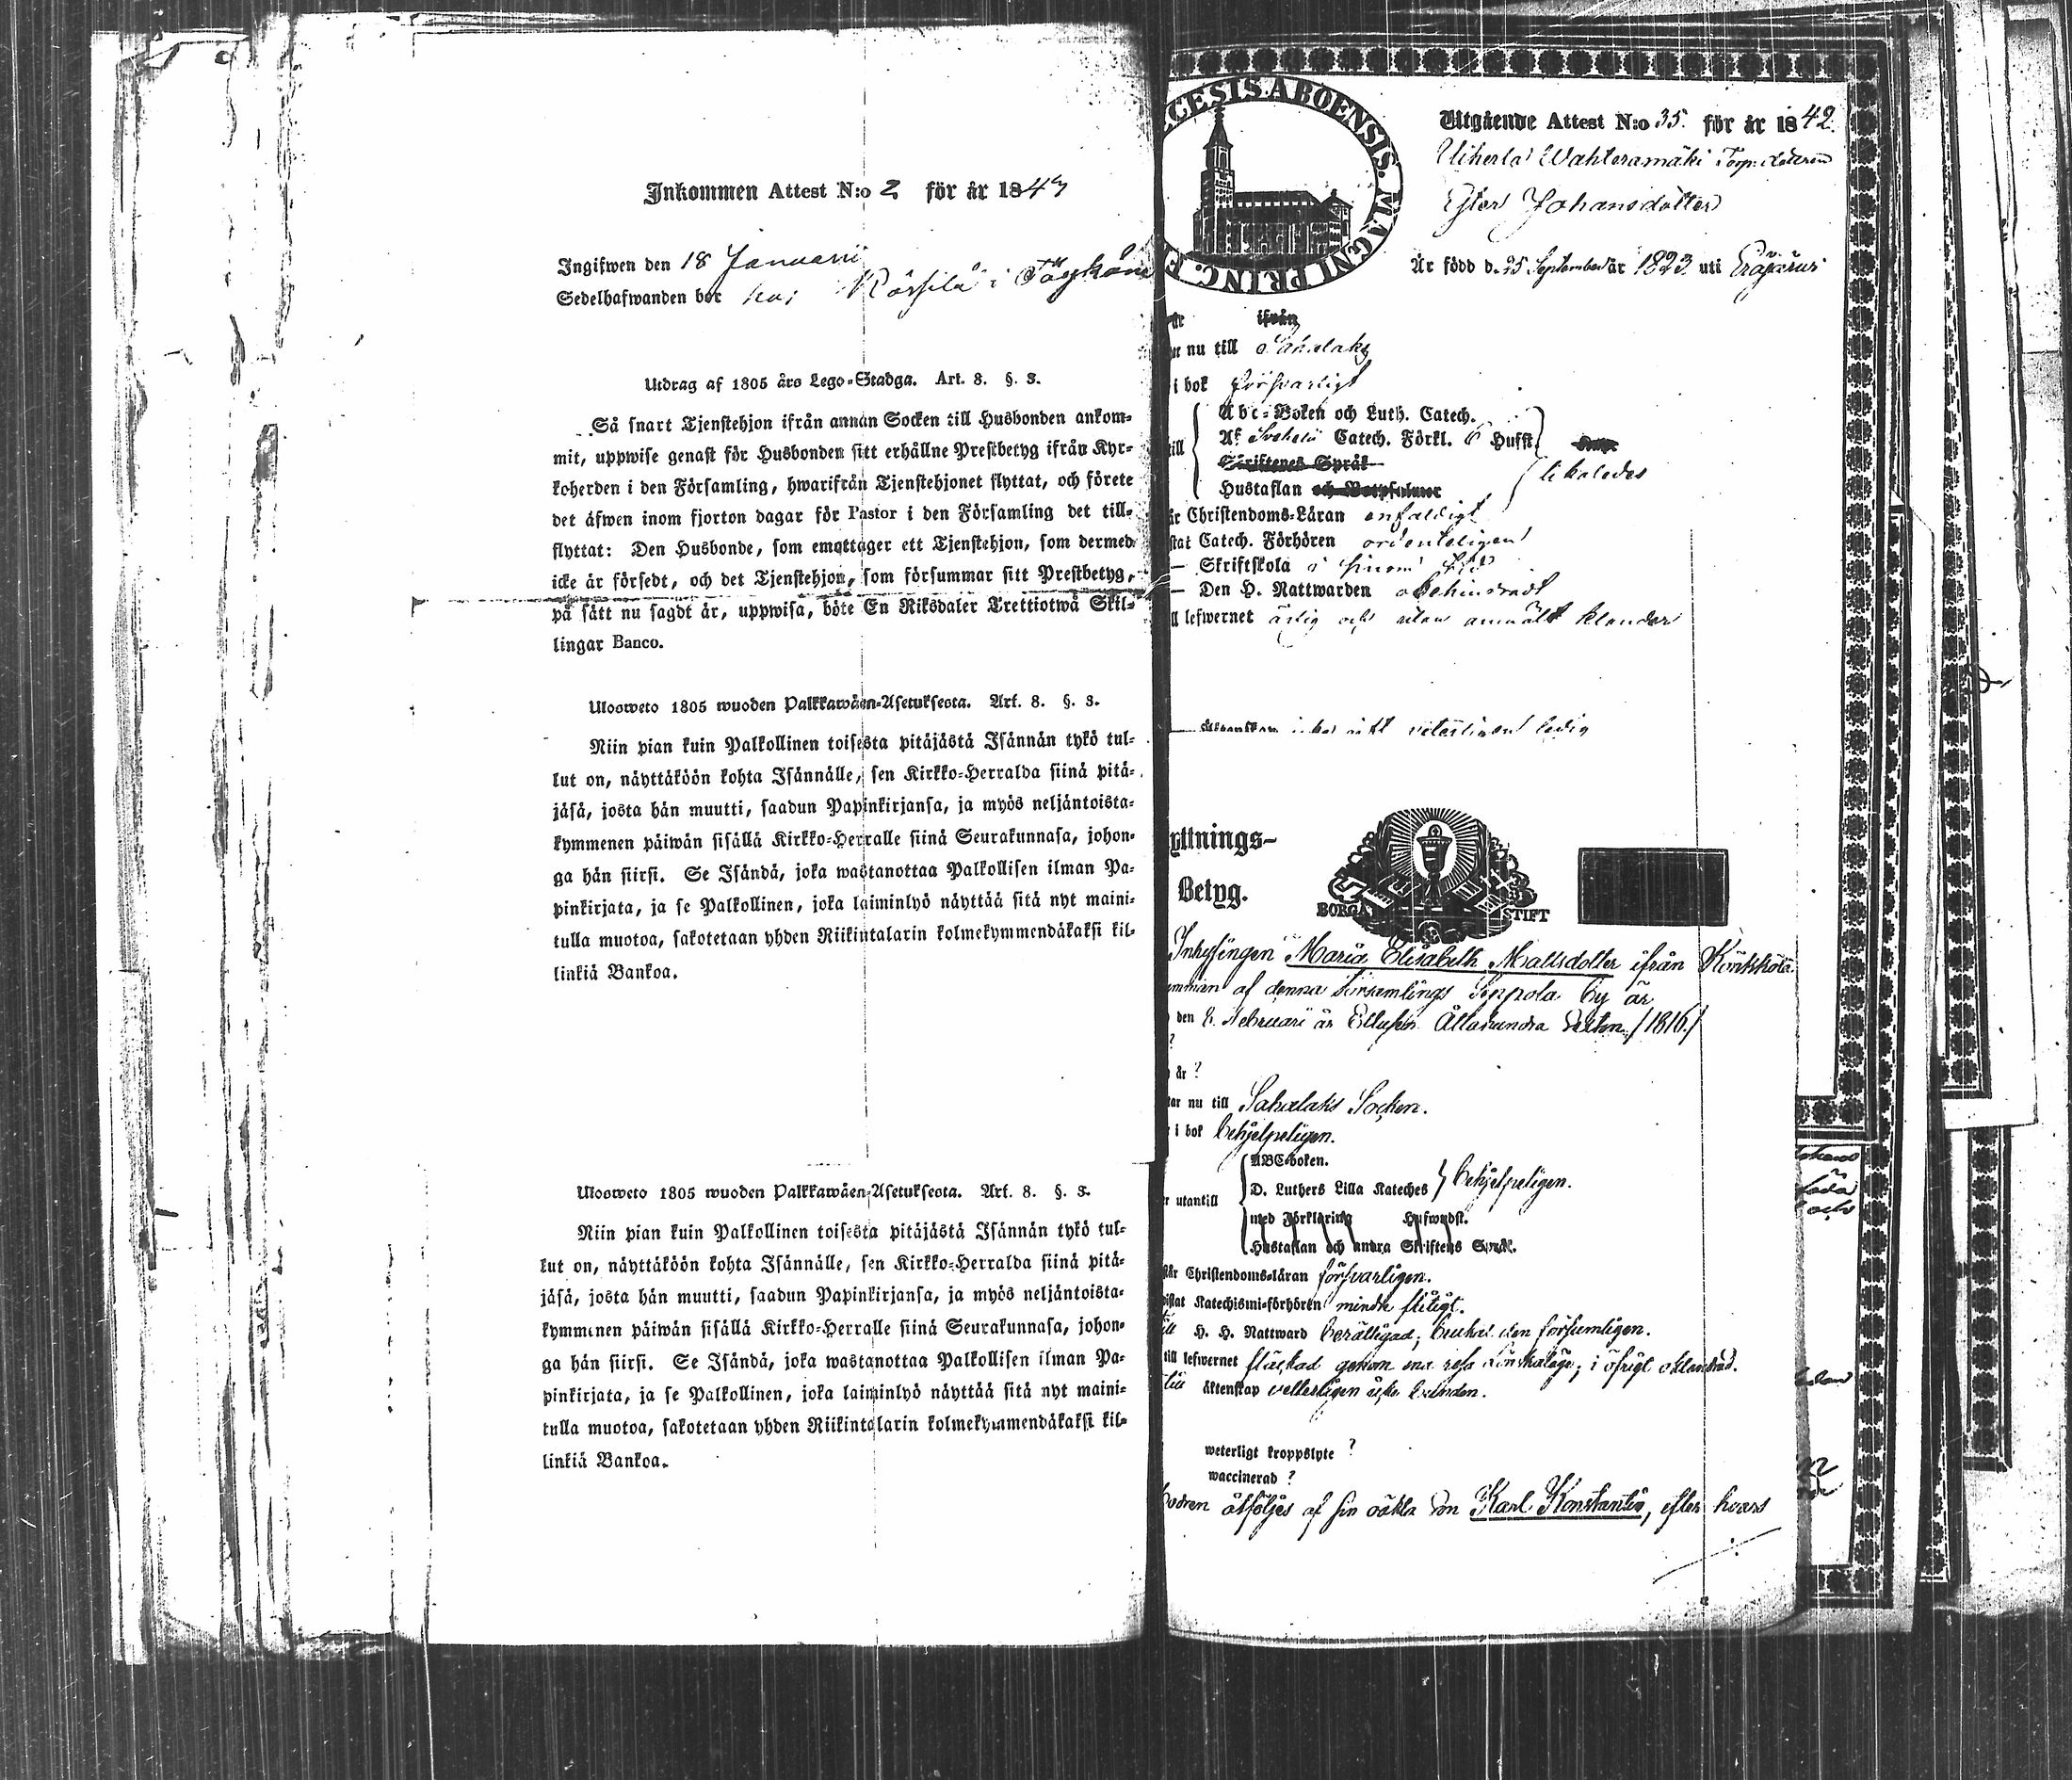 Inkommen Attest N:o 2 för år 1847
Ingifwen den 18 Januarii
Sedelhafwanden bor hos i
Utdrag af 1805 års Lego-Stadga. Art. 8. §. 3.
Så snart Tjenstehjon ifrån annan Socken till Husbonden ankom-
mit, uppwise genast för Husbonden sitt erhållne Prestbetyg ifrån Kyr-
koherden i den Församling, hwarifrån Tjenstehjonet flyttat, och förete
det äfwen inom fjorton dagar för Pastor i den Församling det till-
flyttat: Den Husbonde, som emottager ett Tjenstehjon, som dermed
icke är försedt, och det Tjenstehjon, som försummar sitt Prestbetyg,
på sätt nu sagdt är, uppwisa, böte En Riksdaler Trettiotwå Skil-
lingar Banco.
Ulosweto 1805 wuoden Palkkawäen-Asetuksesta. Art. 8. §. 3.
Niin pian kuin Palkollinen toisesta pitäjästä Isännän tykö tul-
lut on, näyttäköön kohta Isännälle, sen Kirkko-Herralda siinä pitä-
jäsä, josta hän muutti, saadun Papinkirjansa, ja myös neljäntoista-
kymmenen päiwän sisällä Kirkko-Herralle siinä Seurakunnasa, johon-
ga hän siirsi. Se Isändä, joka wastanottaa Palkollisen ilman Pa-
pinkirjata, ja se Palkollinen, joka laiminlyö näyttää sitä nyt maini-
tulla muotoa, sakotetaan yhden Riikintalarin kolmekymmendäkaksi kil-
linkiä Bankoa.
Ulosweto 1805 wuoden Palkkawäen-Asetuksesta. Art. 8. §. 3.
Niin pian kuin Palkollinen toisesta pitäjästä Isännän tykö tul-
lut on, näyttäköön kohta Isännälle, sen Kirkko-Herralda siinä pitä-
jäsä, josta hän muutti, saadun Papinkirjansa, ja myös neljäntoista-
kymmenen päiwän sisällä Kirkko-Herralle siinä Seurakunnasa, johon-
ga hän siirsi. Se Isändä, joka wastanottaa Palkollisen ilman Pa-
pinkirjata, ja se Palkollinen, joka laiminlyö näyttää sitä nyt maini-
tulla muotoa, sakotetaan yhden Riikintalarin kolmekymmendäkaksi kil-
linkiä Bankoa.
ABOENSIS. MAGNI PRINC.
Utgående Attest N:o 35. för år 1842.
Wahteramäki
Johansdotter
Är född d. 25 September år 1823 uti Eräjärvi
ifrån
nu till Sahalaks
i bok försvarligt
Abc-Boken och Luth. Catech.
Af Svebelii Catech. Förkl. 6 Hufst.
Skriftenes Språk
likaledes
Hustaflan och Botpsalmer
Christendoms-Läran enfaldigt
Catech. Förhören ordenteligen
— Skriftskola i sinom tid
— Den H. Nattwarden obehindradt
lefwernet ärlig och utan anmäldt klander
ledig
Betyg.
BORGÅ STIFT
Inhysingen Maria Elisabeth Mattsdotter ifrån Könkkölä
af denna Församlings Seppola by är
den 6. Februari år Ettusen Åttahundra Sexton /1816/
?
år ?
nu till Sahalaks Socken.
i bok behjelpeligen.
ABC-boken.
utantill
D. Luthers Lilla Kateches behjelpeligen.
med Förklaring Hufwudst.
Hustaflan och andra Skriftens Språk.
Christendoms-läran försvarligen.
Katechismi-förhören mindre flitigt.
H. H. Nattward berättigad; brukat den försumligen.
till lefwernet fläckad genom ena resa lönskaläge; i öfrigt oklandrad.
äktenskap vetterligen icke bunden.
weterligt kroppslyte ?
waccinerad ?
åtföljes af sin oäkta Son Karl Konstantin, efter hvars